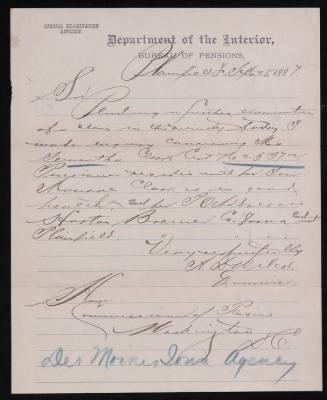 SPECIAL EXAMINATION
DIVISION.
Department of the Interior,
BUREAU OF PENSIONS,
Plainfield Ia Sept 25, 1887.
Sir
Pending a further examination
of a claim in this vicinity today I
made enquiry concerning Mrs
Samantha Cook Cert No 25972
Pensioner resides with her Son
Cook is in good
health and her P.O. address is
Horton Bremer Co Iowa and not
Plainfield.
Very respectfully
Examiner.
Hon
Commissioner of Pensions
Washington
D.C.
Des Moines Iowa Agency